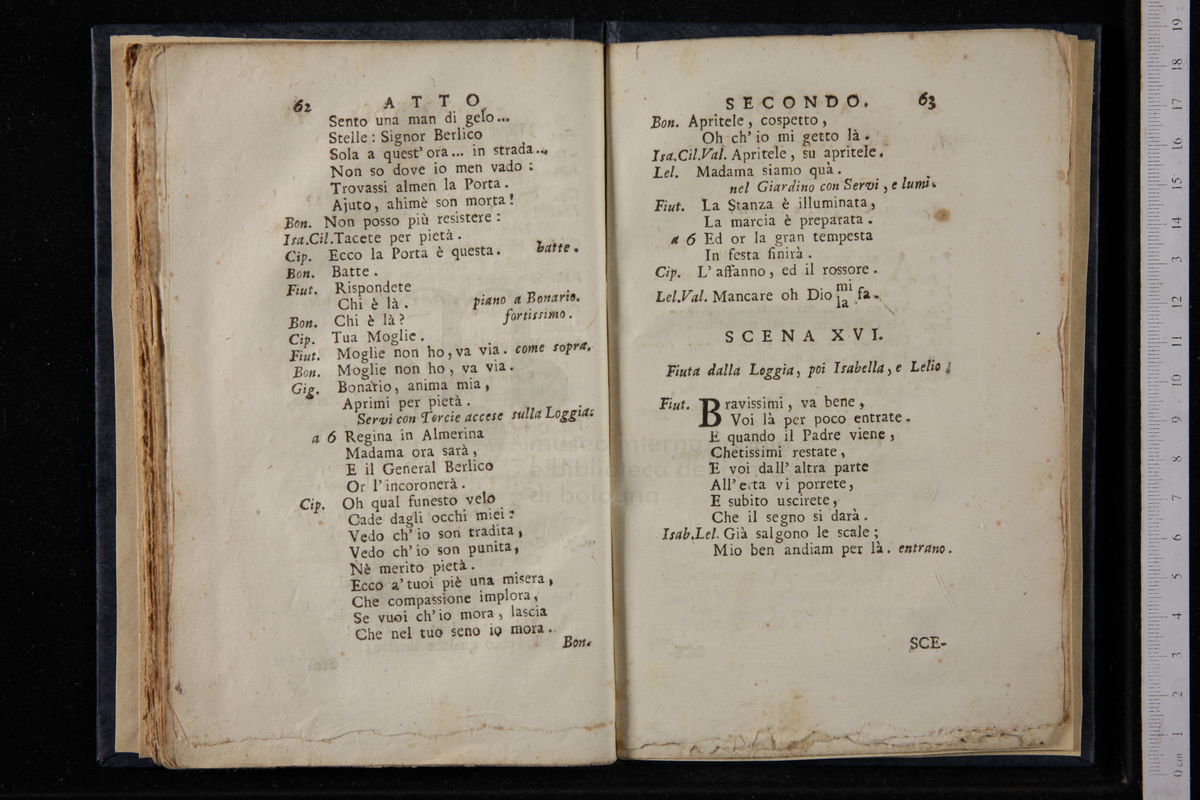 62 ATTO
Sento una man di gelo...
Stelle : Signor Berlico
Sola a quest' ora... in strada...
Non so dove io men vado :
Trovassi almen la Porta .
Ajuto, ahimè son morta !
Bon. Non posso più resistere :
Isa.Cil. Tacete per pietà .
Cip. Ecco la Porta è questa . batte .
Bon. Batte .
Fiut. Rispondete
Chi è là . piano a Bonario.
Bon. Chi è là ? fortissimo .
Cip. Tua Moglie .
Fiut. Moglie non ho, va via . come sopra.
Bon. Moglie non ho , va via .
Gig. Bonario, anima mia ,
Aprimi per pietà .
Servi con Torcie accese sulla Loggia:
a 6 Regina in Almerina
Madama ora sarà ,
E il General Berlico
Or l' incoronerà .
Cip. Oh qual funesto velo
Cade dagli occhi miei :
Vedo ch' io son tradita ,
Vedo ch' io son punita,
Nè merito pietà .
Ecco a' tuoi piè una misera ,
Che compassione implora ,
Se vuoi ch' io mora , lascia
Che nel tuo seno io mora .
Bon.
SECONDO. 63
Bon. Apritele , cospetto ,
Oh ch' io mi getto là .
Isa.Cil.Val. Apritele , su apritele .
Lel. Madama siamo quà .
nel Giardino con Servi , e lumi.
Fiut. La Stanza è illuminata,
La marcia è preparata .
a 6 Ed or la gran tempesta
In festa finirà .
Cip. L' affanno , ed il rossore .
Lel.Val. Mancare oh Dio mi fa .
la
SCENA XVI.
Fiuta dalla Loggia, poi Isabella, e Lelio :
Fiut. Bravissimi , va bene ,
Voi là per poco entrate .
E quando il Padre viene ,
Chetissimi restate ,
E voi dall' altra parte
All' erta vi porrete ,
E subito uscirete ,
Che il segno si darà .
Isab.Lel. Già salgono le scale ;
Mio ben andiam per là . entrano .
SCE-